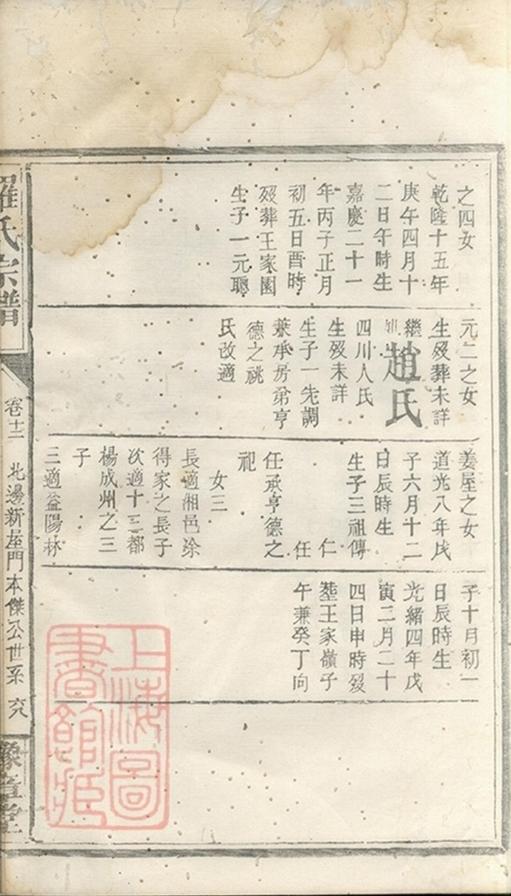 之四女
乾隆十五年
庚午四月十
二日午時生
嘉慶二十一
年丙子正月
初五日酉時
殁葬王家園
生子一元聰
元二之女
生殁葬未詳
繼
趙氏
四川人氏
生殁未詳
生子一先調
兼承房弟亨
德之祧
氏改適
姜屋之女
道光八年戊
子六月十二
日辰時生
生子三祖傳
仁
任
任承亨德之
祀
女三
長適湘邑凃
得家之長子
次適十三都
楊成州之三
子
三適益陽林
子十月初一
日辰時生
光緒四年戊
寅二月二十
四日申時殁
塟王家嶺子
午兼癸丁向
羅氏宗譜
卷十二
北邊新屋門本傑公世系
豫章堂
上海圖
書館藏